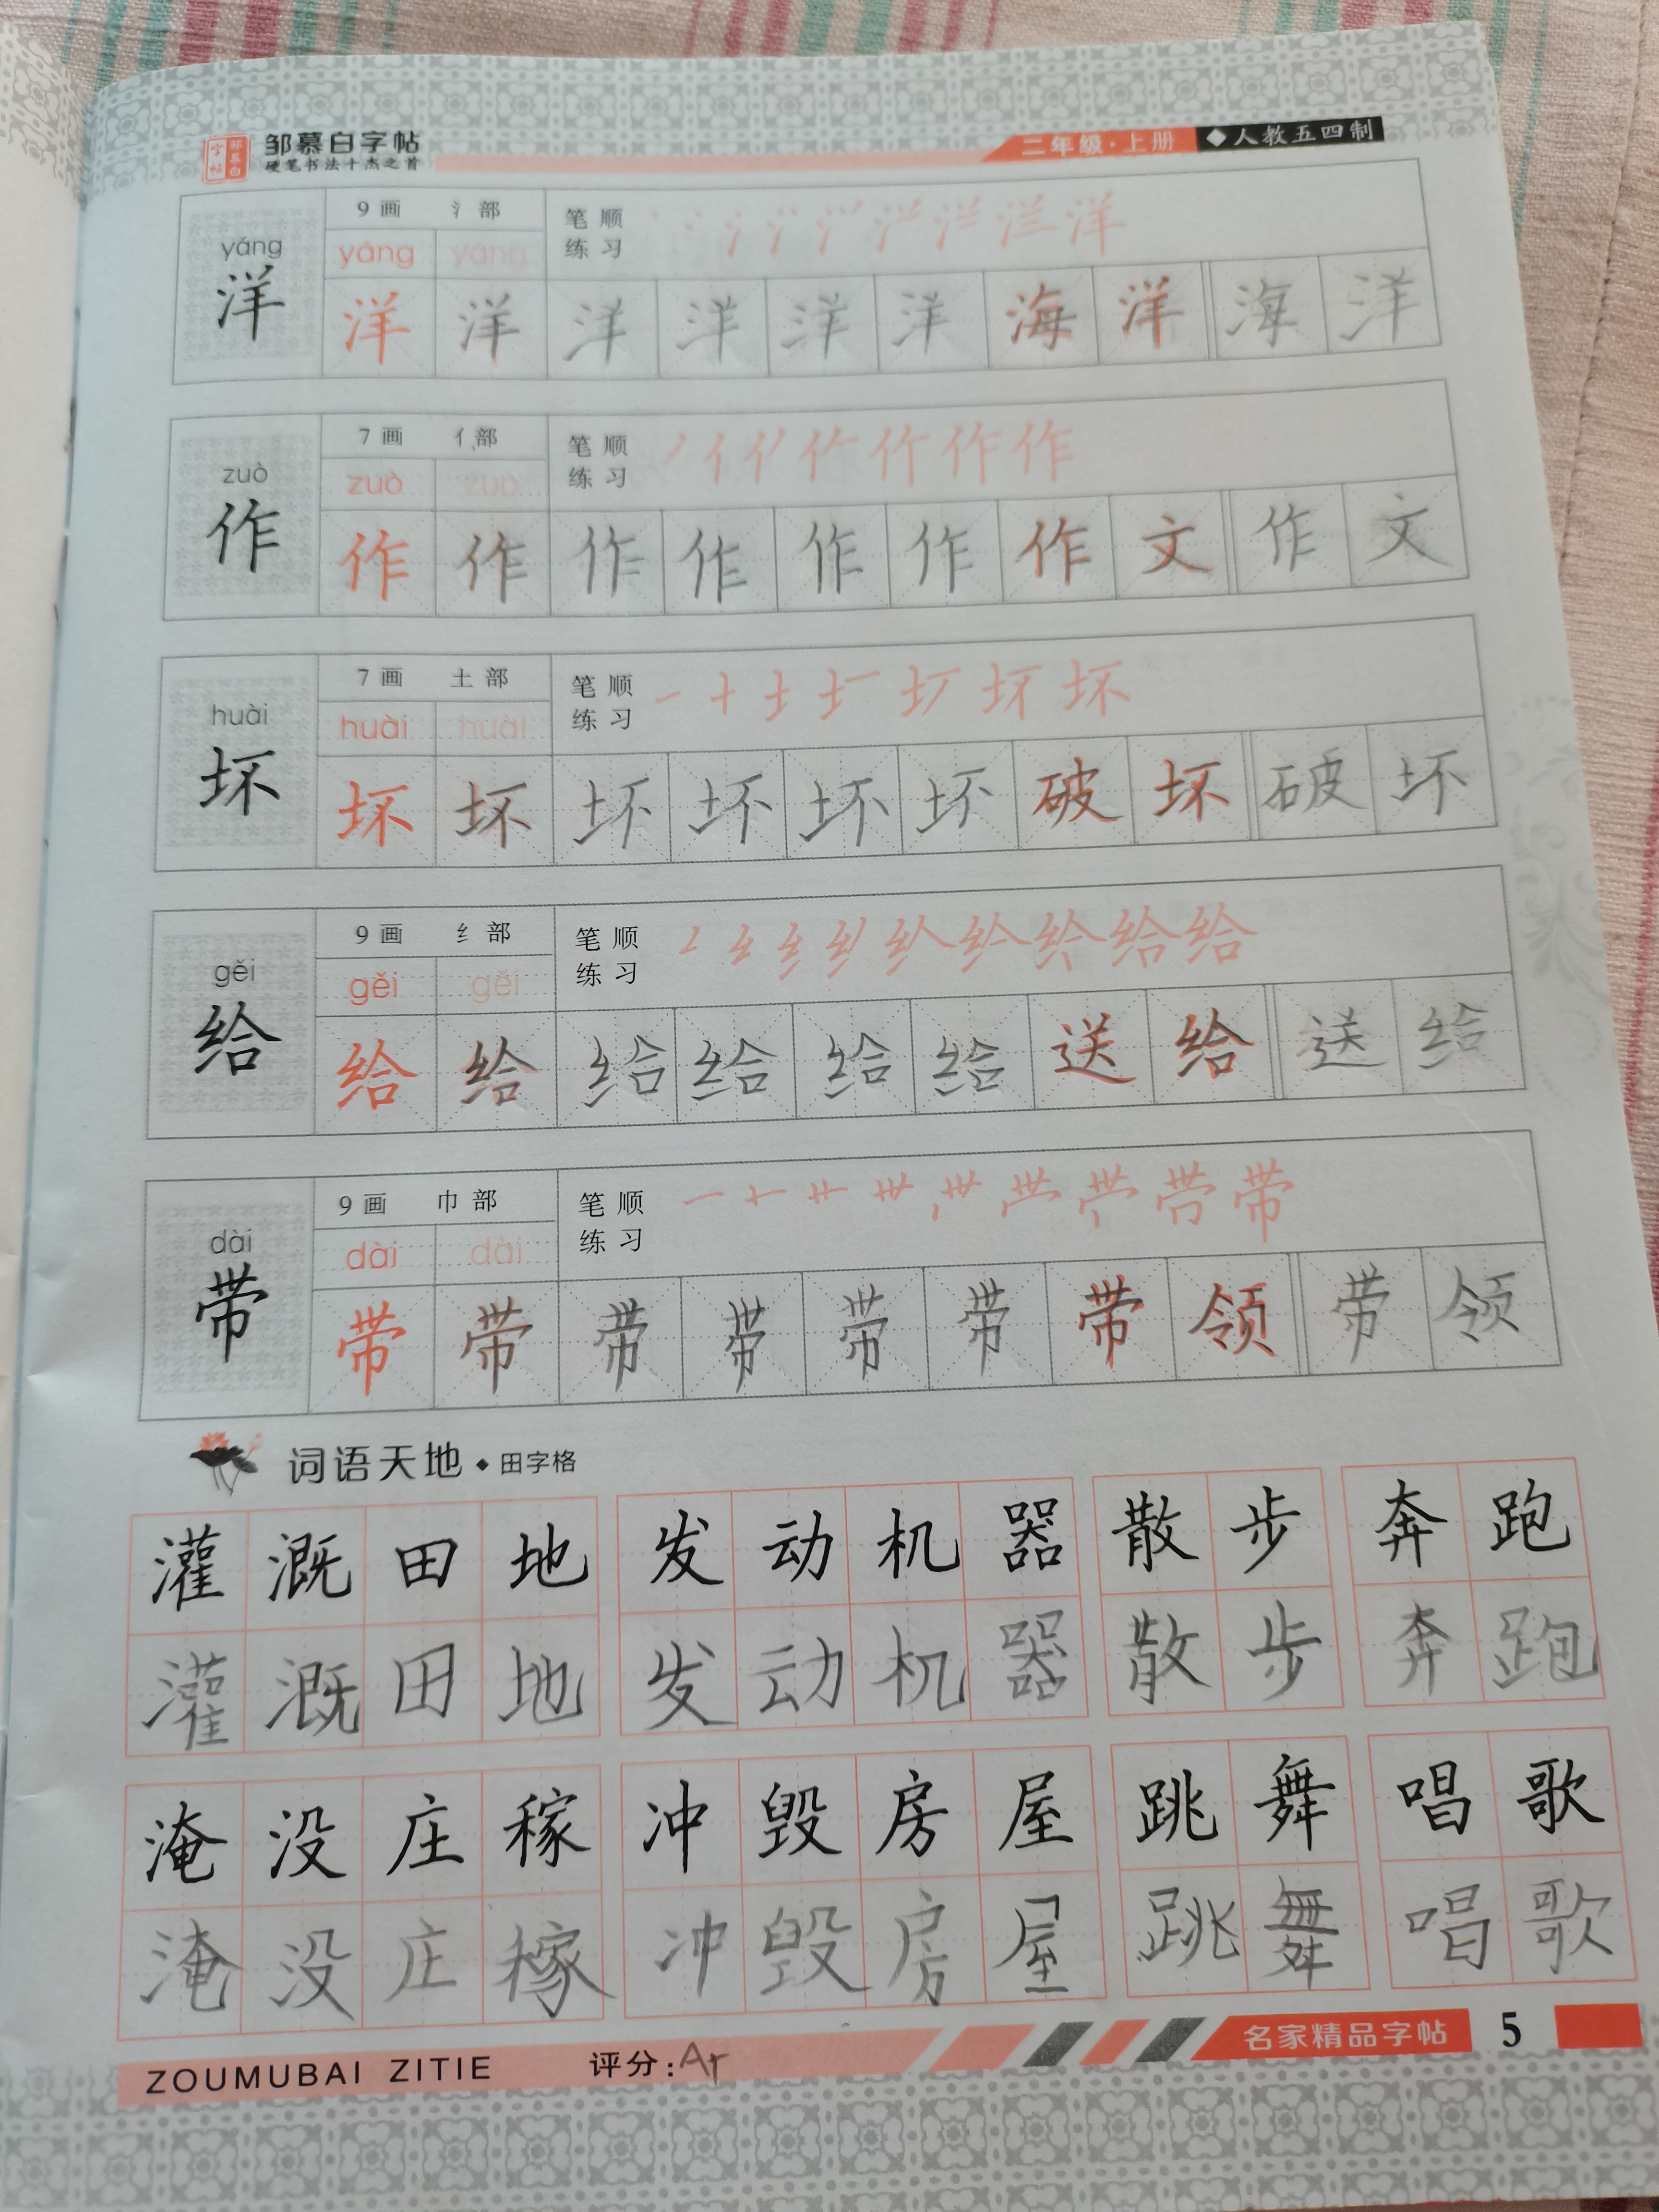 邹慕白字帖
硬笔书法十杰之首
二年级·上册 ◆人教五四制
yáng 洋
9画 氵部
yáng yáng
笔顺练习
洋 洋 洋 洋 洋 洋 海 洋 海 洋
zuò 作
7画 亻部
zuò zuò
笔顺练习
作 作 作 作 作 作 作 文 作 文
huài 坏
7画 土部
huài huài
笔顺练习
坏 坏 坏 坏 坏 坏 破 坏 破 坏
gěi 给
9画 纟部
gěi gěi
笔顺练习
给 给 给 给 给 给 送 给 送 给
dài 带
9画 巾部
dài dài
笔顺练习
带 带 带 带 带 带 带 领 带 领
词语天地◆田字格
灌溉田地 发动机器 散步 奔跑
灌溉田地 发动机器 散步 奔跑
淹没庄稼 冲毁房屋 跳舞 唱歌
淹没庄稼 冲毁房屋 跳舞 唱歌
名家精品字帖 5
ZOUMUBAI ZITIE 评分: